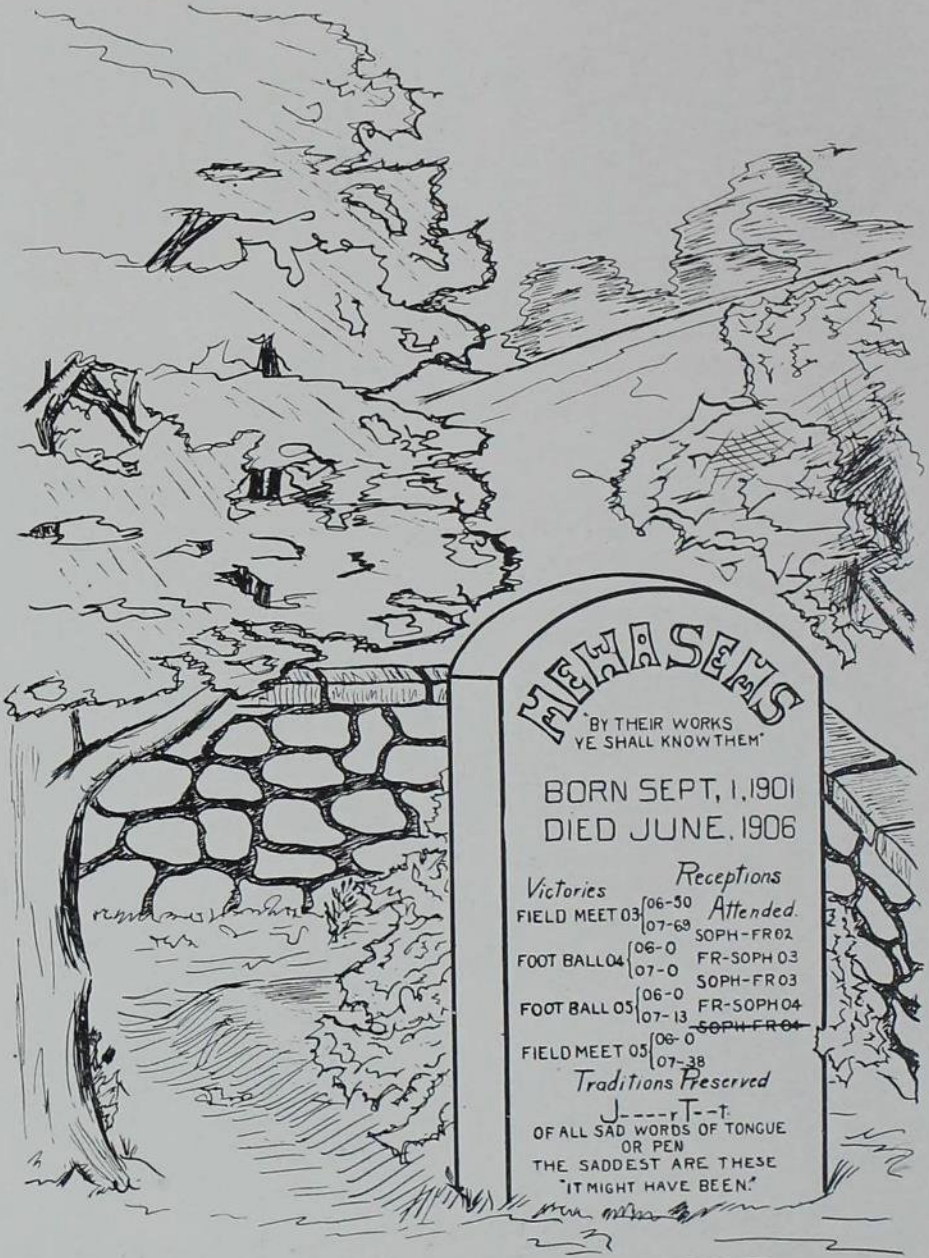 MEWASEMS
"BY THEIR WORKS
YE SHALL KNOW THEM"
BORN SEPT, 1, 1901
DIED JUNE, 1906
Victories
FIELD MEET 03 { 06-50
07-69
FOOT BALL 04 { 06-0
07-0
FOOT BALL 05 { 06-0
07-13
FIELD MEET 05 { 06-0
07-38
Receptions
Attended.
SOPH-FR 02
FR-SOPH 03
SOPH-FR 03
FR-SOPH 04
SOPH-FR 04
Traditions Preserved
J----r T--t.
OF ALL SAD WORDS OF TONGUE
OR PEN
THE SADDEST ARE THESE
"IT MIGHT HAVE BEEN."